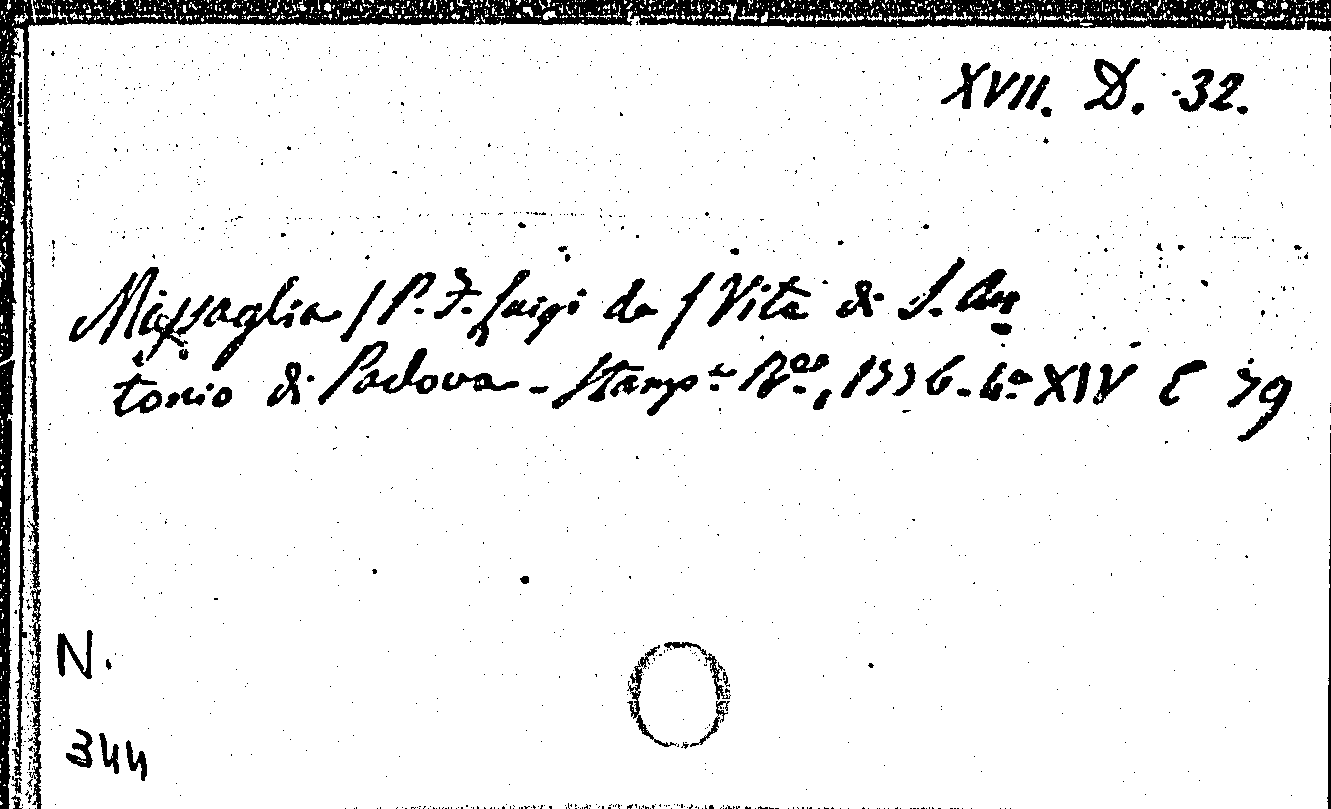 XVII. D. 32.
Missaglia / P. F. Luigi da / Vita di S. An
tonio di Padova - Stamp.
XIV
N.
344